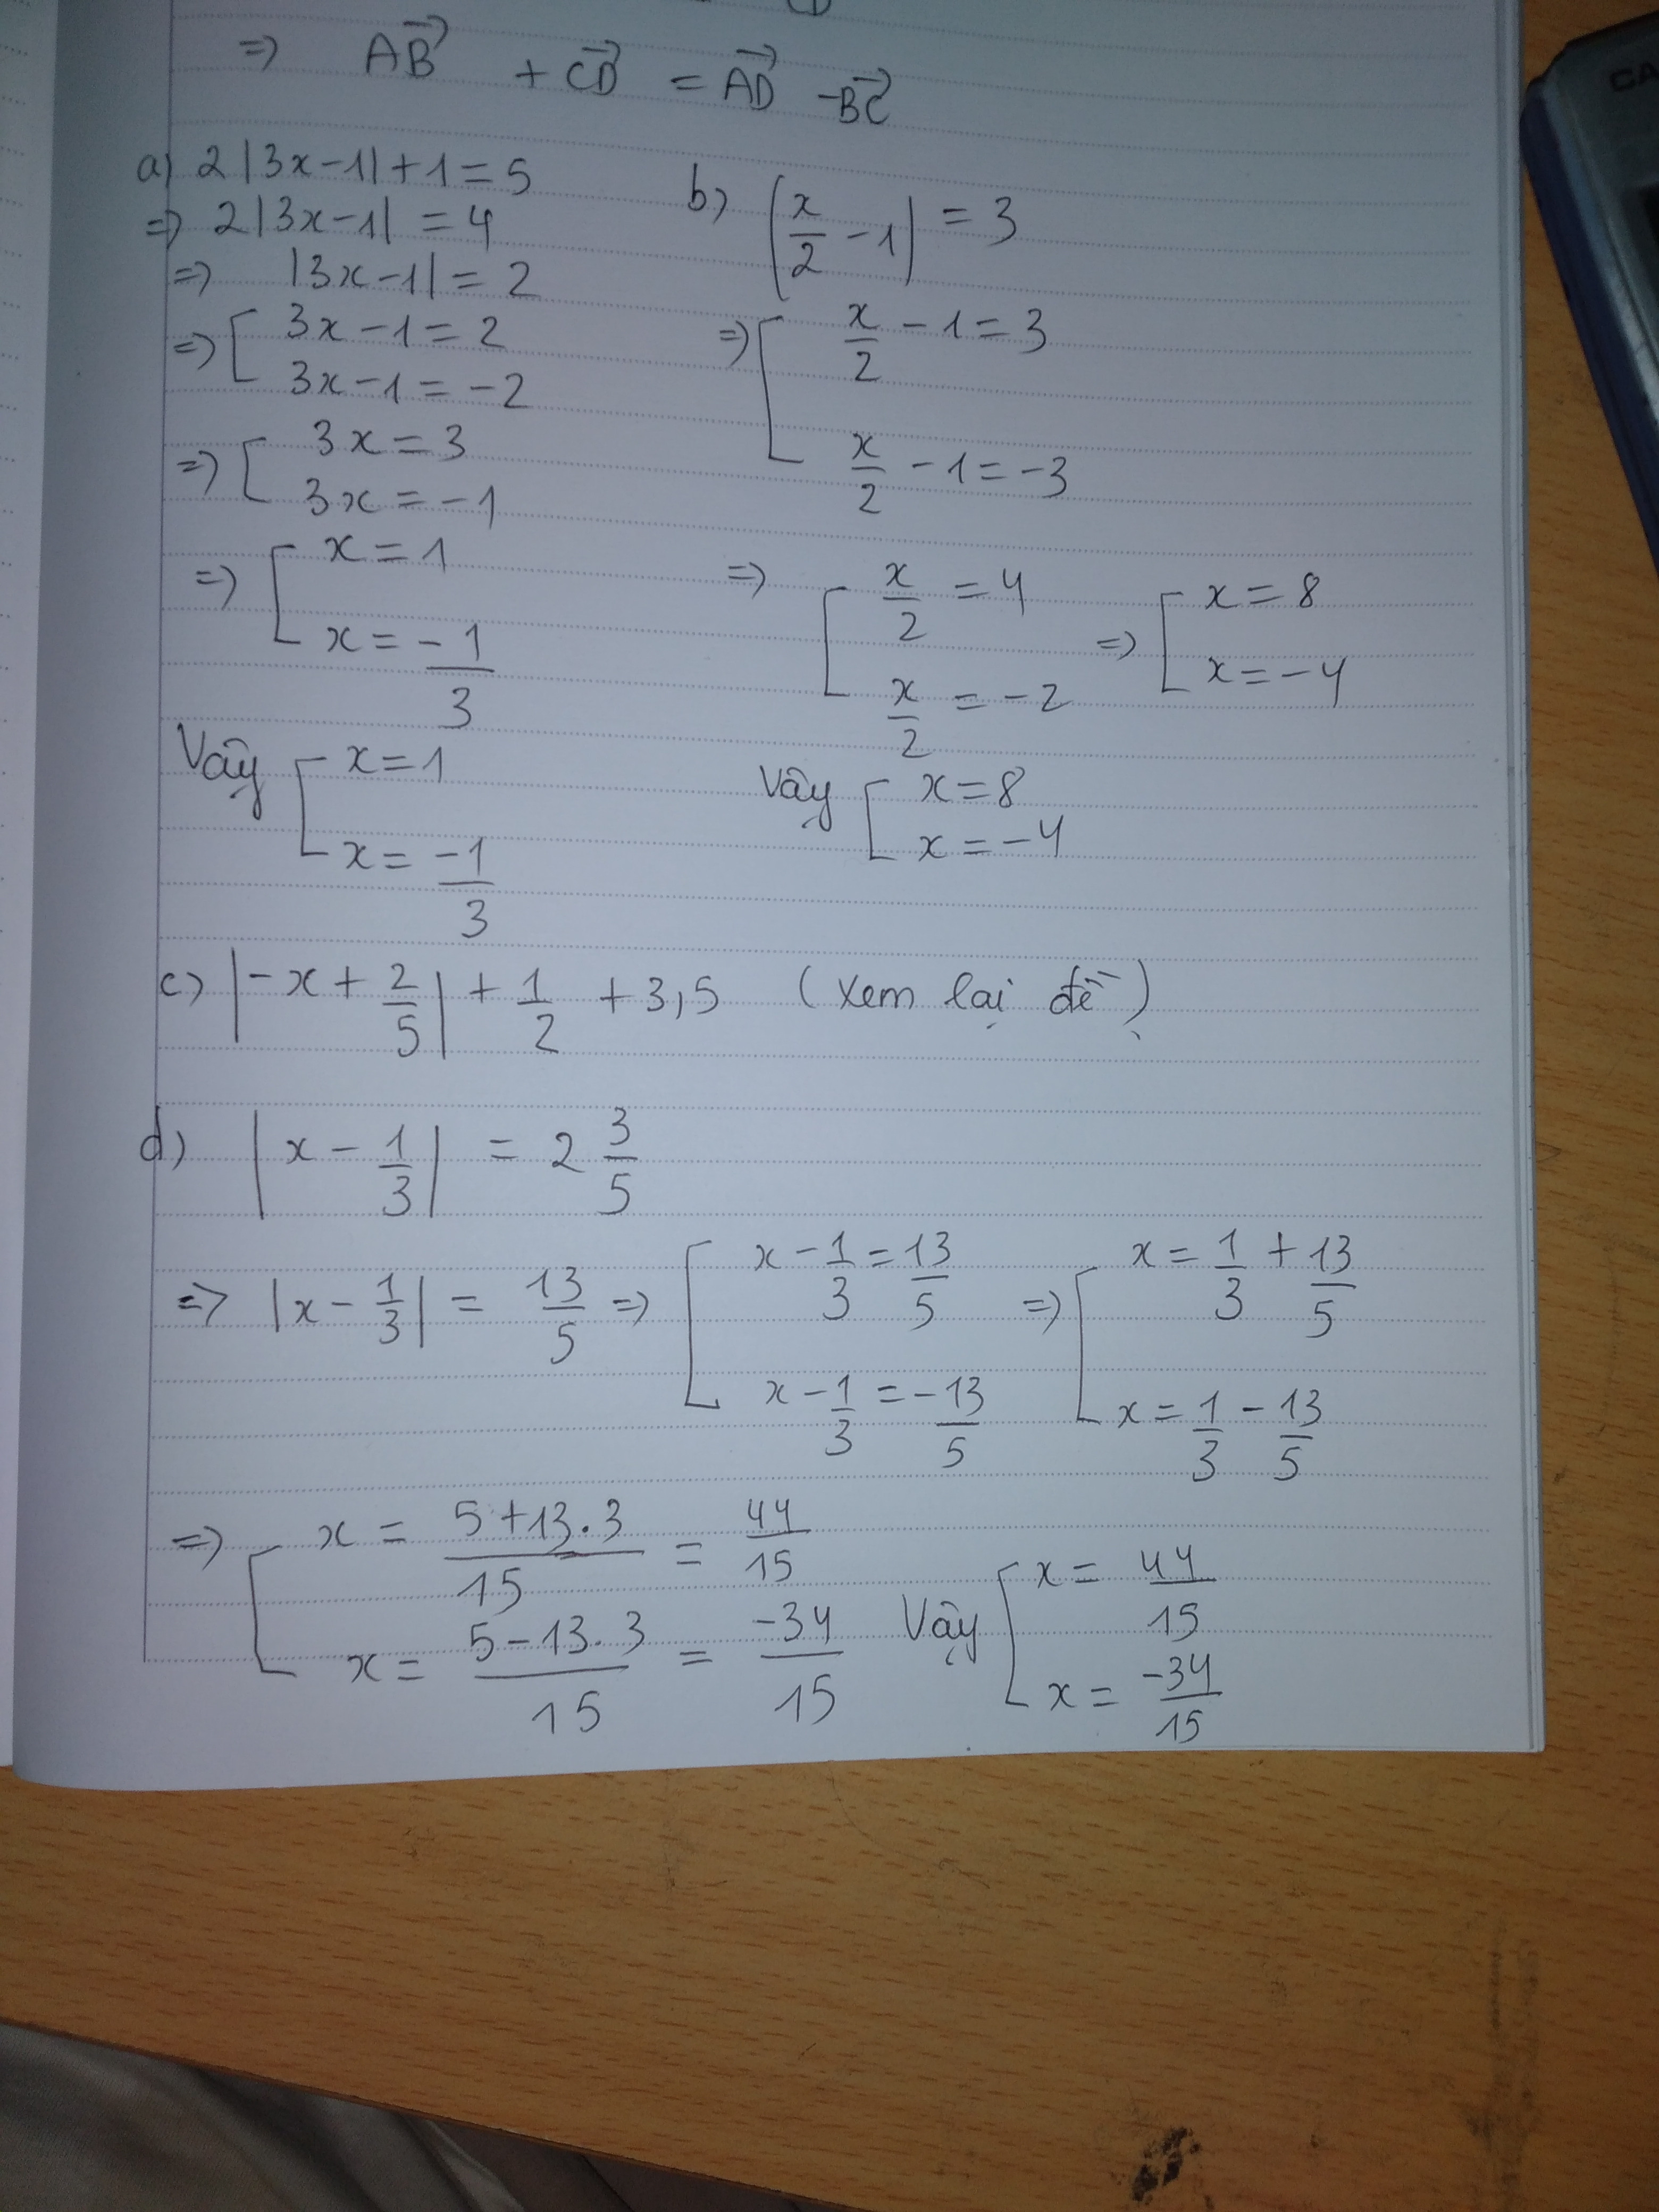 => AB + CD = AD - BC
a) 2|3x-1|+1=5
=> 2|3x-1| = 4
=> |3x-1| = 2
=> [ 3x-1=2
3x-1=-2
=> [ 3x=3
3x=-1
=> [ x=1
x=-1/3
Vậy [ x=1
x=-1/3
b) |x/2 -1| = 3
=> [ x/2 -1=3
x/2 -1=-3
=> [ x/2 =4 => [ x=8
x/2 =-2 x=-4
Vậy [ x=8
x=-4
c) |-x+2/5| + 1/2 +3,5 (xem lại đề)
d) |x-1/3| = 2 3/5
=> |x-1/3| = 13/5 => [ x-1/3=13/5 => [ x=1/3+13/5
x-1/3=-13/5 x=1/3-13/5
=> [ x= 5+13.3/15 = 44/15 Vậy [ x= 44/15
x= 5-13.3/15 = -34/15 x= -34/15